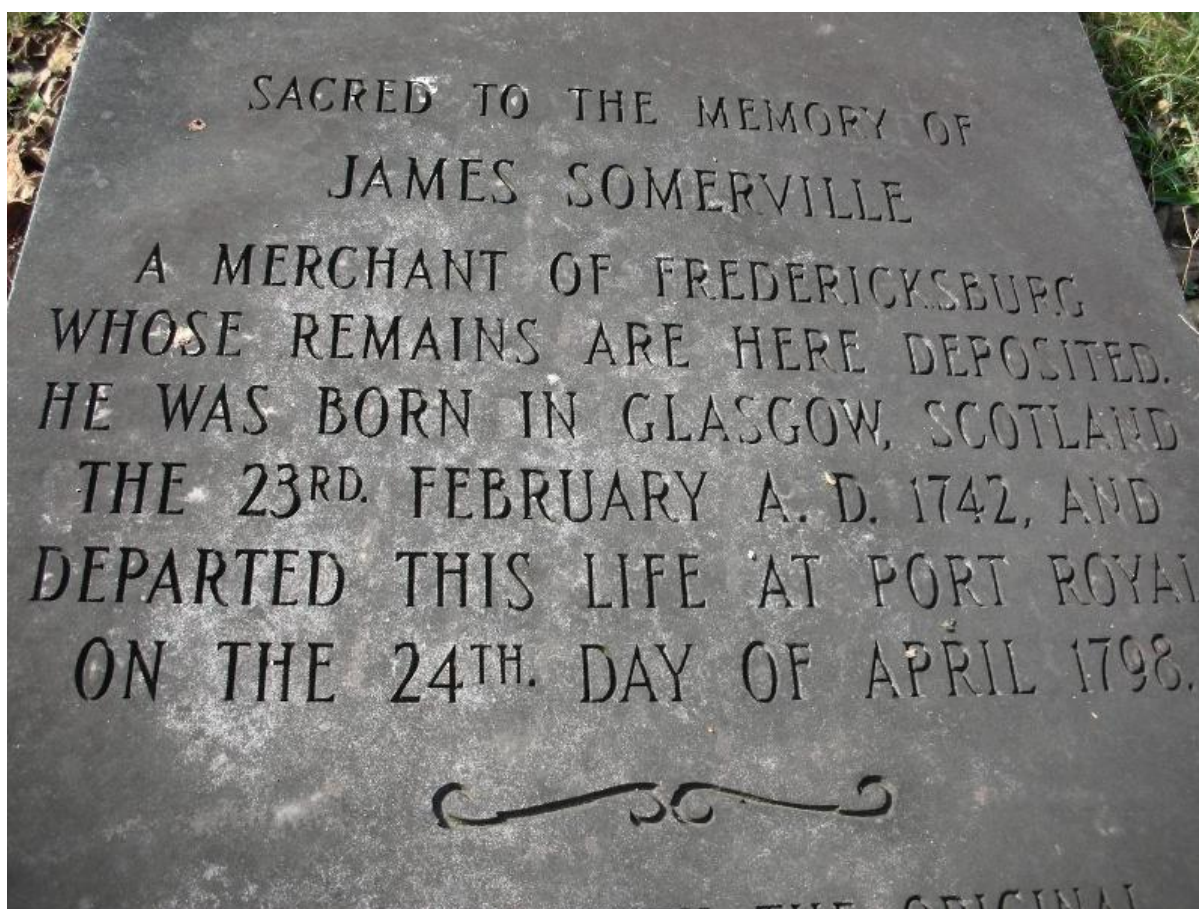 SACRED TO THE MEMORY OF
JAMES SOMERVILLE
A MERCHANT OF FREDERICKSBURG
WHOSE REMAINS ARE HERE DEPOSITED.
HE WAS BORN IN GLASGOW, SCOTLAND
THE 23RD. FEBRUARY A. D. 1742, AND
DEPARTED THIS LIFE AT PORT ROYAL
ON THE 24TH. DAY OF APRIL 1798.
THE ORIGINAL